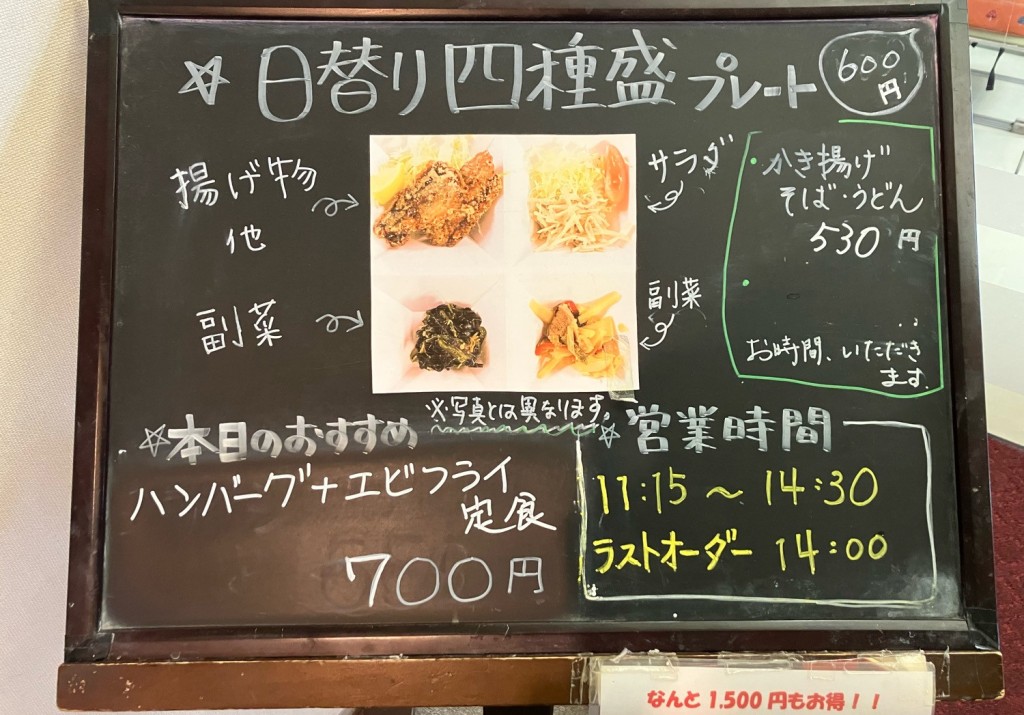 ☆ 日替り四種盛プレート 600円
揚げ物
他
サラダ
副菜
副菜
※写真とは異なります。
・かき揚げ
そば・うどん
530円
・
お時間、いただき
ます。
☆本日のおすすめ
ハンバーグ+エビフライ
定食
700円
☆営業時間
11:15 ～ 14:30
ラストオーダー 14:00
なんと 1.500 円もお得！！